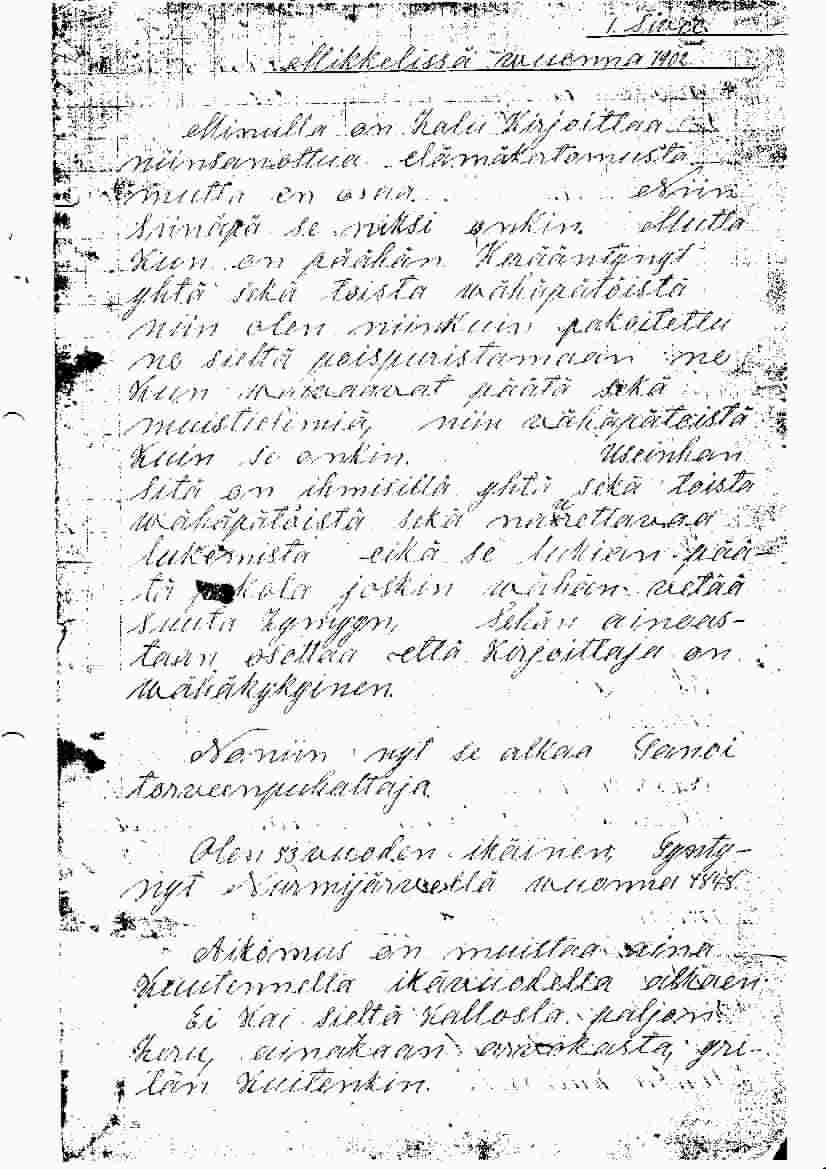 1. Sivu.
Mikkelissä vuonna 1902
Minulla on halu Kirjoittaa
niinsanottua elämäkatomusta
mutta en osaa. Niin
Siinäpä se niksi onkin. Mutta
Kun on päähän Kerääntynyt
yhtä sekä toista wähäpätöistä
niin olen niinkuin pakoitettu
ne sieltä poispuristamaan ne
Kun waiwaavat päätä sekä
muistielimiä, niin vähäpätöistä
Kuin se onkin. Useinhan
Sitä on ihmisillä yhtä sekä toista
wähäpätöistä sekä naurettavaa
lukemista eikä se lukian pää-
tä pakola joskin wähän vetää
Suuta hymyyn, Sehän ainoas-
taan osottaa että Kirjoittaja on
wähäkykyinen.
Noniin nyt se alkaa Sanoi
torveenpuhaltaja.
Olen 53 vuoden ikäinen, Synty-
nyt Nurmijärvellä wuonna 1848.
Aikomus on muistaa aina
Kuutennella ikävuodella alkaen.
Ei Kai sieltä Kallosta paljon
heru, ainakaan arvokasta, yri-
tän Kuitenkin.